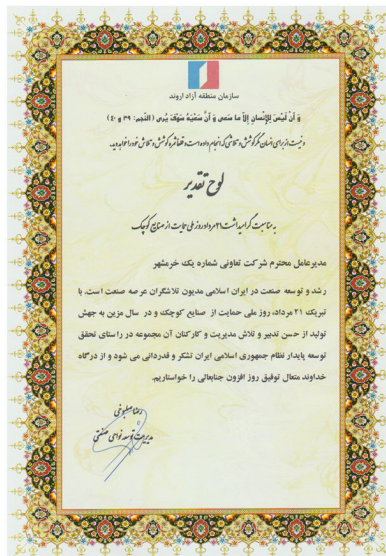 سازمان منطقه آزاد اروند
وَ أَن لَیْسَ لِلْإِنسانِ إِلَّا ما سَعی وَ أَنَّ سَعْیَهُ سَوْفَ یُری (النجم: ۳۹ و ۴۰)
و نیست از برای انسان مگر کوشش و تلاشی که انجام داده است و قطعا ثمره کوشش و تلاش خود را خواهد دید.
لوح تقدیر
به مناسبت گرامیداشت ۲۱ مرداد روز ملی حمایت از صنایع کوچک
مدیرعامل محترم شرکت تعاونی شماره یک خرمشهر
رشد و توسعه صنعت در ایران اسلامی مدیون تلاشگران عرصه صنعت است. با
تبریک ۲۱ مرداد، روز ملی حمایت از صنایع کوچک و در سال مزین به جهش
تولید از حسن تدبیر و تلاش مدیریت و کارکنان آن مجموعه در راستای تحقق
توسعه پایدار نظام جمهوری اسلامی ایران تشکر و قدردانی می شود و از درگاه
خداوند متعال توفیق روز افزون جنابعالی را خواستاریم.
مدیریت توسعه نواحی صنعتی